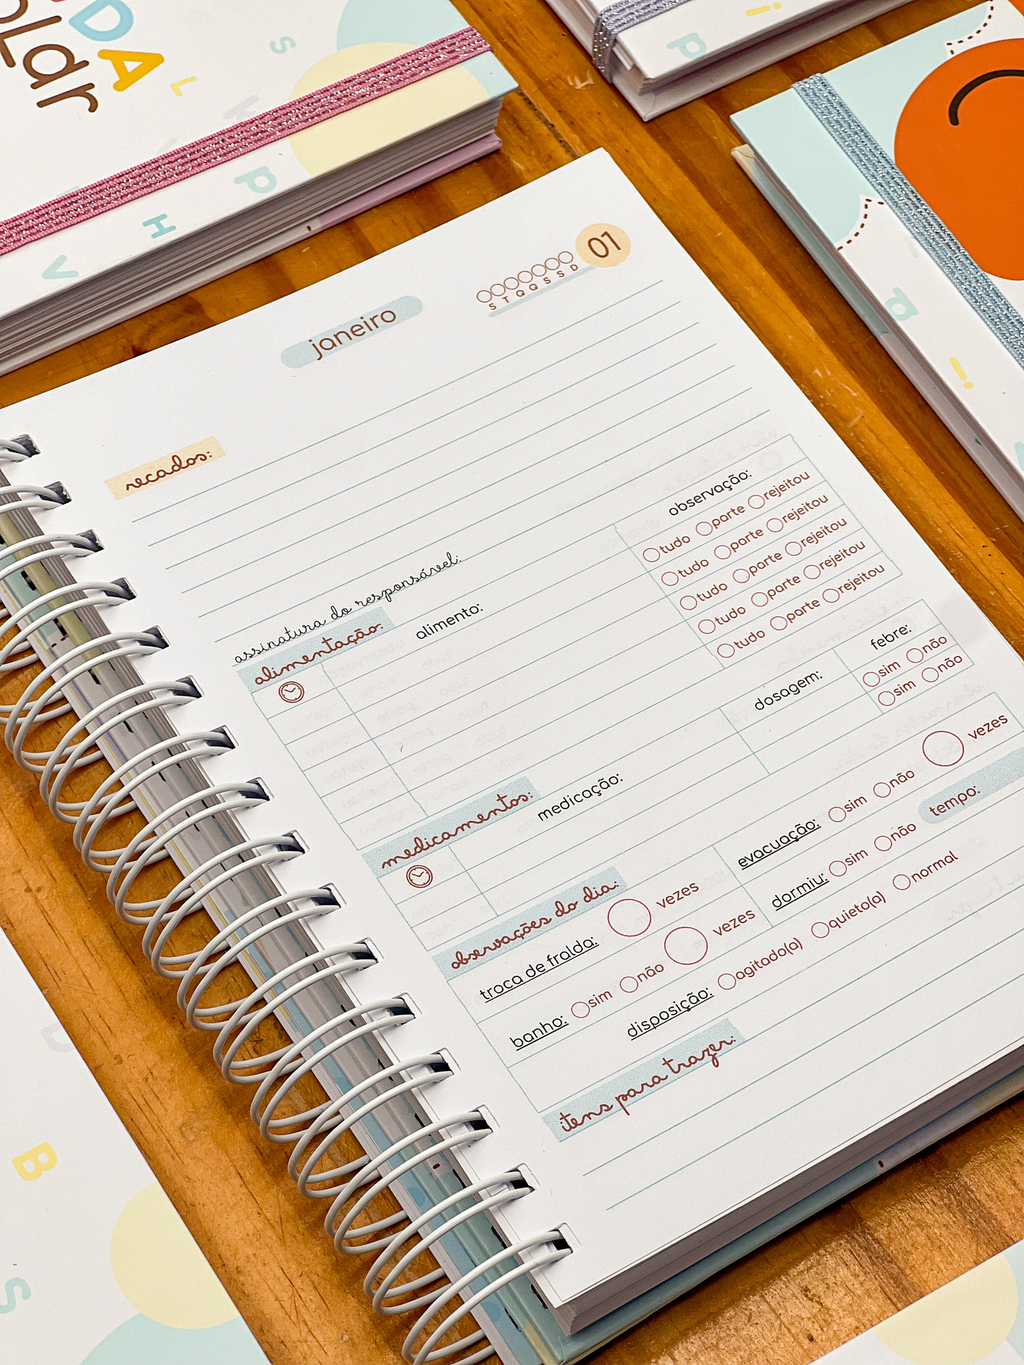 DA
oLar
janeiro
01
S T Q Q S S D
recados:
assinatura do responsável:
alimentação:
alimento:
observação:
tudo parte rejeitou
tudo parte rejeitou
tudo parte rejeitou
tudo parte rejeitou
tudo parte rejeitou
medicamentos:
medicação:
dosagem:
febre:
sim não
sim não
observações do dia:
troca de fralda: vezes
evacuação: sim não vezes
banho: sim não vezes
dormiu: sim não tempo:
disposição: agitado(a) quieto(a) normal
itens para trazer: